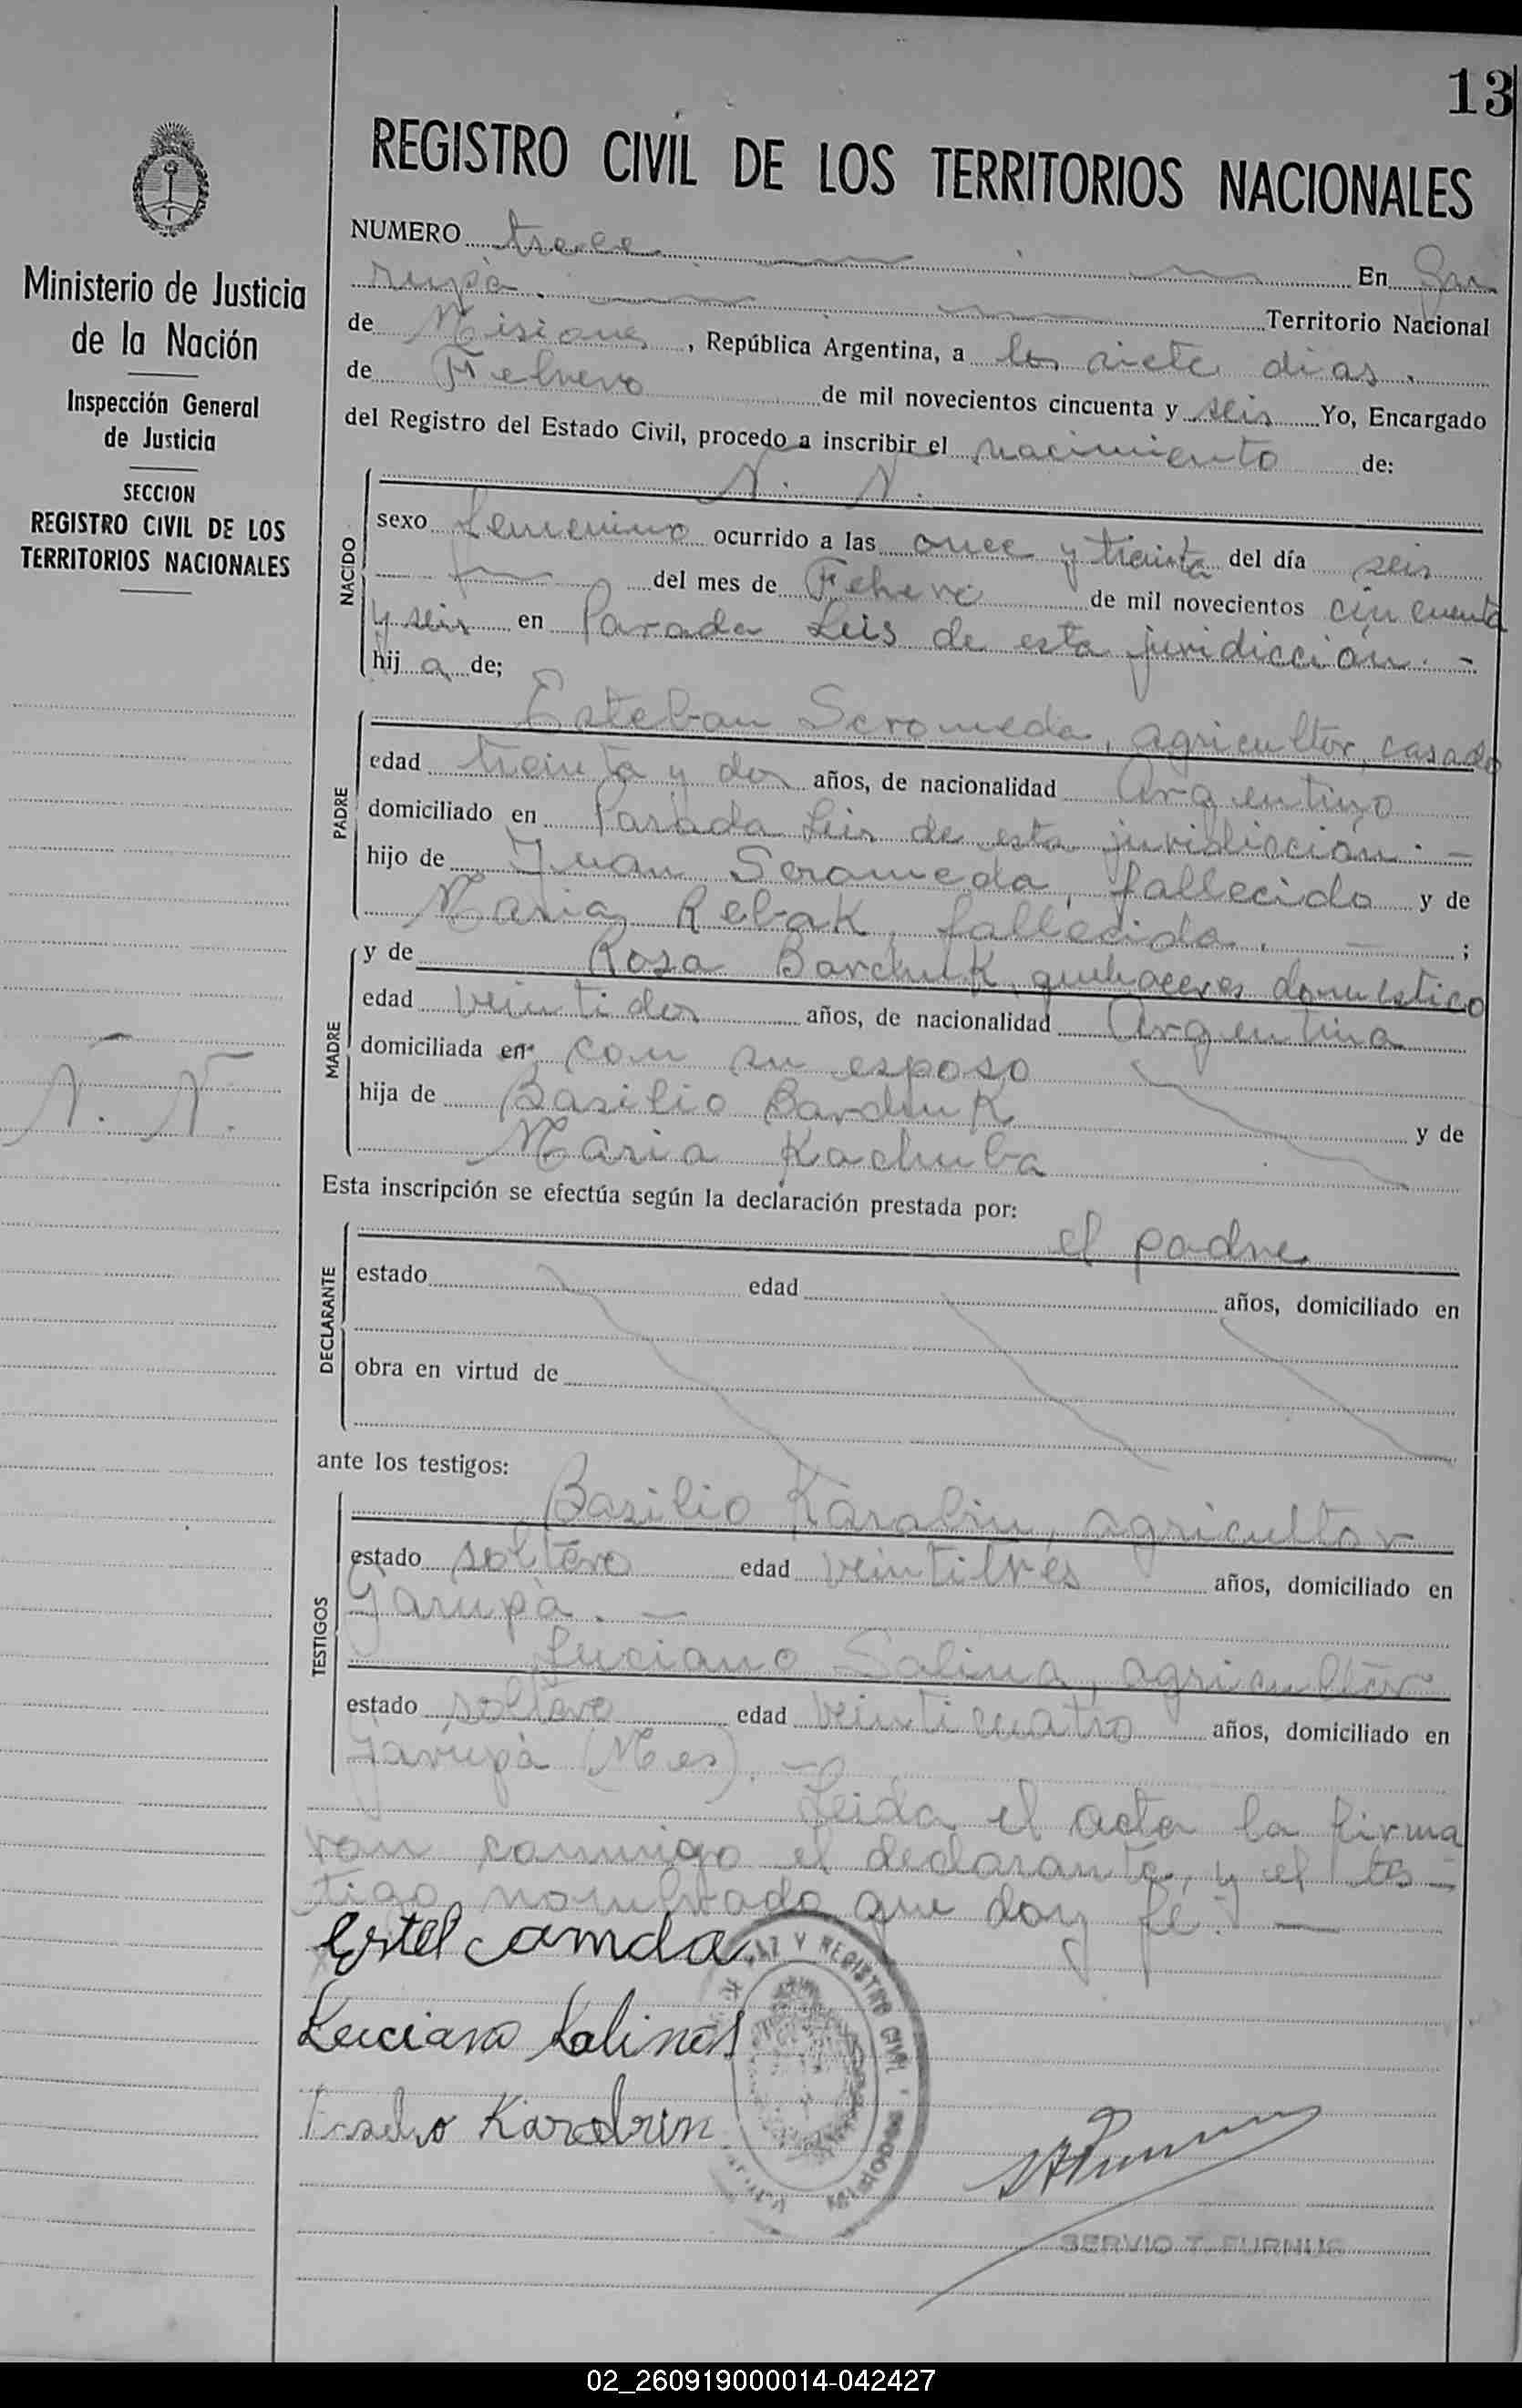 13
REGISTRO CIVIL DE LOS TERRITORIOS NACIONALES
Ministerio de Justicia
de la Nación
Inspección General
de Justicia
SECCION
REGISTRO CIVIL DE LOS
TERRITORIOS NACIONALES
N. N.
NUMERO trece En Ga
rupà. Territorio Nacional
de Misiones, República Argentina, a los siete dias.
de Febrero de mil novecientos cincuenta y seis Yo, Encargado
del Registro del Estado Civil, procedo a inscribir el nacimiento de:
NACIDO
N. N.
sexo femenino ocurrido a las once y treinta del día seis
del mes de Febrero de mil novecientos cincuenta
y seis en Parada Leis de esta juridicción. -
hij a de;
PADRE
Esteban Scromeda, agricultor, casado
edad treinta y dos años, de nacionalidad Argentino
domiciliado en Parada Leis de esta jurisdicción. -
hijo de Juan Scromeda, fallecido y de
Maria Rebak, fallecida. - ;
MADRE
y de Rosa Barchuk, quehaceres domestico
edad veintidos años, de nacionalidad Argentina
domiciliada en con su esposo
hija de Basilio Barchuk y de
Maria Kachuba
Esta inscripción se efectúa según la declaración prestada por:
DECLARANTE
el padre
estado edad años, domiciliado en
obra en virtud de
ante los testigos:
TESTIGOS
Basilio Karabin, agricultor
estado soltero edad veintitres años, domiciliado en
Garupà. -
Luciano Salina, agricultor
estado soltero edad veinticuatro años, domiciliado en
Garupà (Mes). -
Leida el acta la firma
ron conmigo el declarante, y el tes-
tigo nombrado que doy fé. -
Luciano Salinas
SERVIO T. FURNUS
02_260919000014-042427